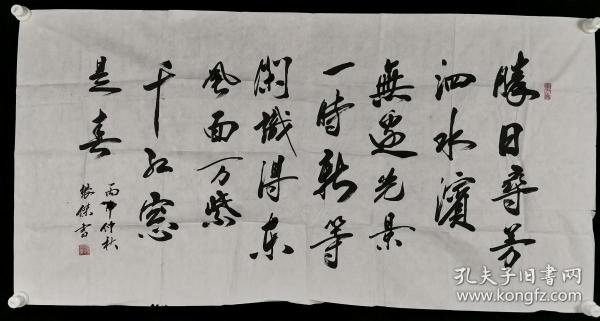 勝日尋芳
泗水濱
無邊光景
一時新等
閑識得東
風面万紫
千红窓
是春
丙申仲秋
張傑書
孔夫子旧书网
www.kongfz.com